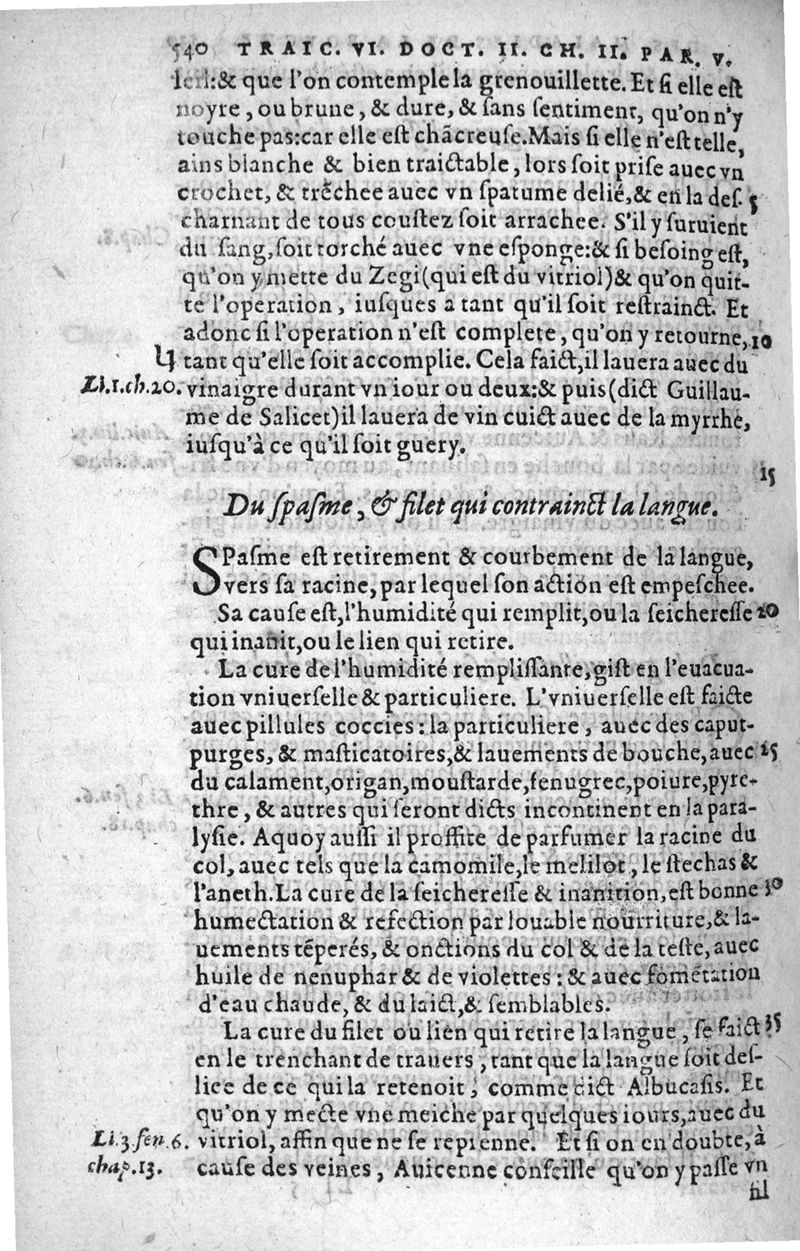 540 TRAIC. VI. DOCT. II. CH. II. PAR. V.
leil:& que l'on contemple la grenouillette. Et si elle est
noyre, ou brune, & dure, & sans sentiment, qu'on n'y
touche pas:car elle est chãcreuse. Mais si elle n'est telle,
ains blanche & bien traictable, lors soit prise auec vn
crochet, & trẽchee auec vn spatume delié, & en la des- 5
charnant de tous coustez soit arrachee. S'il y suruient
du sang, soit torché auec vne esponge:& si besoing est,
qu'on y mette du Zegi(qui est du vitriol)& qu'on quit-
te l'operation, iusques a tant qu'il soit restrainct. Et
adonc si l'operation n'est complete, qu'on y retourne, 10
tant qu'elle soit accomplie. Cela faict, il lauera auec du
Li.1.ch.20. vinaigre durant vn iour ou deux:& puis(dict Guillau-
me de Salicet)il lauera de vin cuict auec de la myrrhe,
iusqu'à ce qu'il soit guery.
15
Du spasme, & filet qui contrainct la langue.
SPasme est retirement & courbement de la langue,
vers sa racine, par lequel son action est empeschee.
Sa cause est, l'humidité qui remplit, ou la seicheresse 20
qui inanit, ou le lien qui retire.
La cure de l'humidité remplissante, gist en l'euacua-
tion vniuerselle & particuliere. L'vniuerselle est faicte
auec pillules coccies : la particuliere, auec des caput-
purges, & masticatoires, & lauements de bouche, auec 25
du calament, origan, moustarde, fenugrec, poiure, pyre-
thre, & autres qui seront dicts incontinent en la para-
lysie. Aquoy aussi il proffite de parfumer la racine du
col, auec tels que la camomile, le melilot, le stechas &
l'aneth. La cure de la seicheresse & inanition, est bonne 30
humectation & refection par louable nourriture, & la-
uements tẽperés, & onctions du col & de la teste, auec
huile de nenuphar & de violettes : & auec fomẽtation
d'eau chaude, & du laict, & semblables.
La cure du filet ou lien qui retire la langue, se faict 35
en le trenchant de trauers, tant que la langue soit des-
liee de ce qui la retenoit, comme dict Albucasis. Et
qu'on y mecte vne meiche par quelques iours, auec du
Li.3.fen.6. vitriol, affin que ne se reprenne. Et si on en doubte, à
chap.13. cause des veines, Auicenne conseille qu'on y passe vn
fil